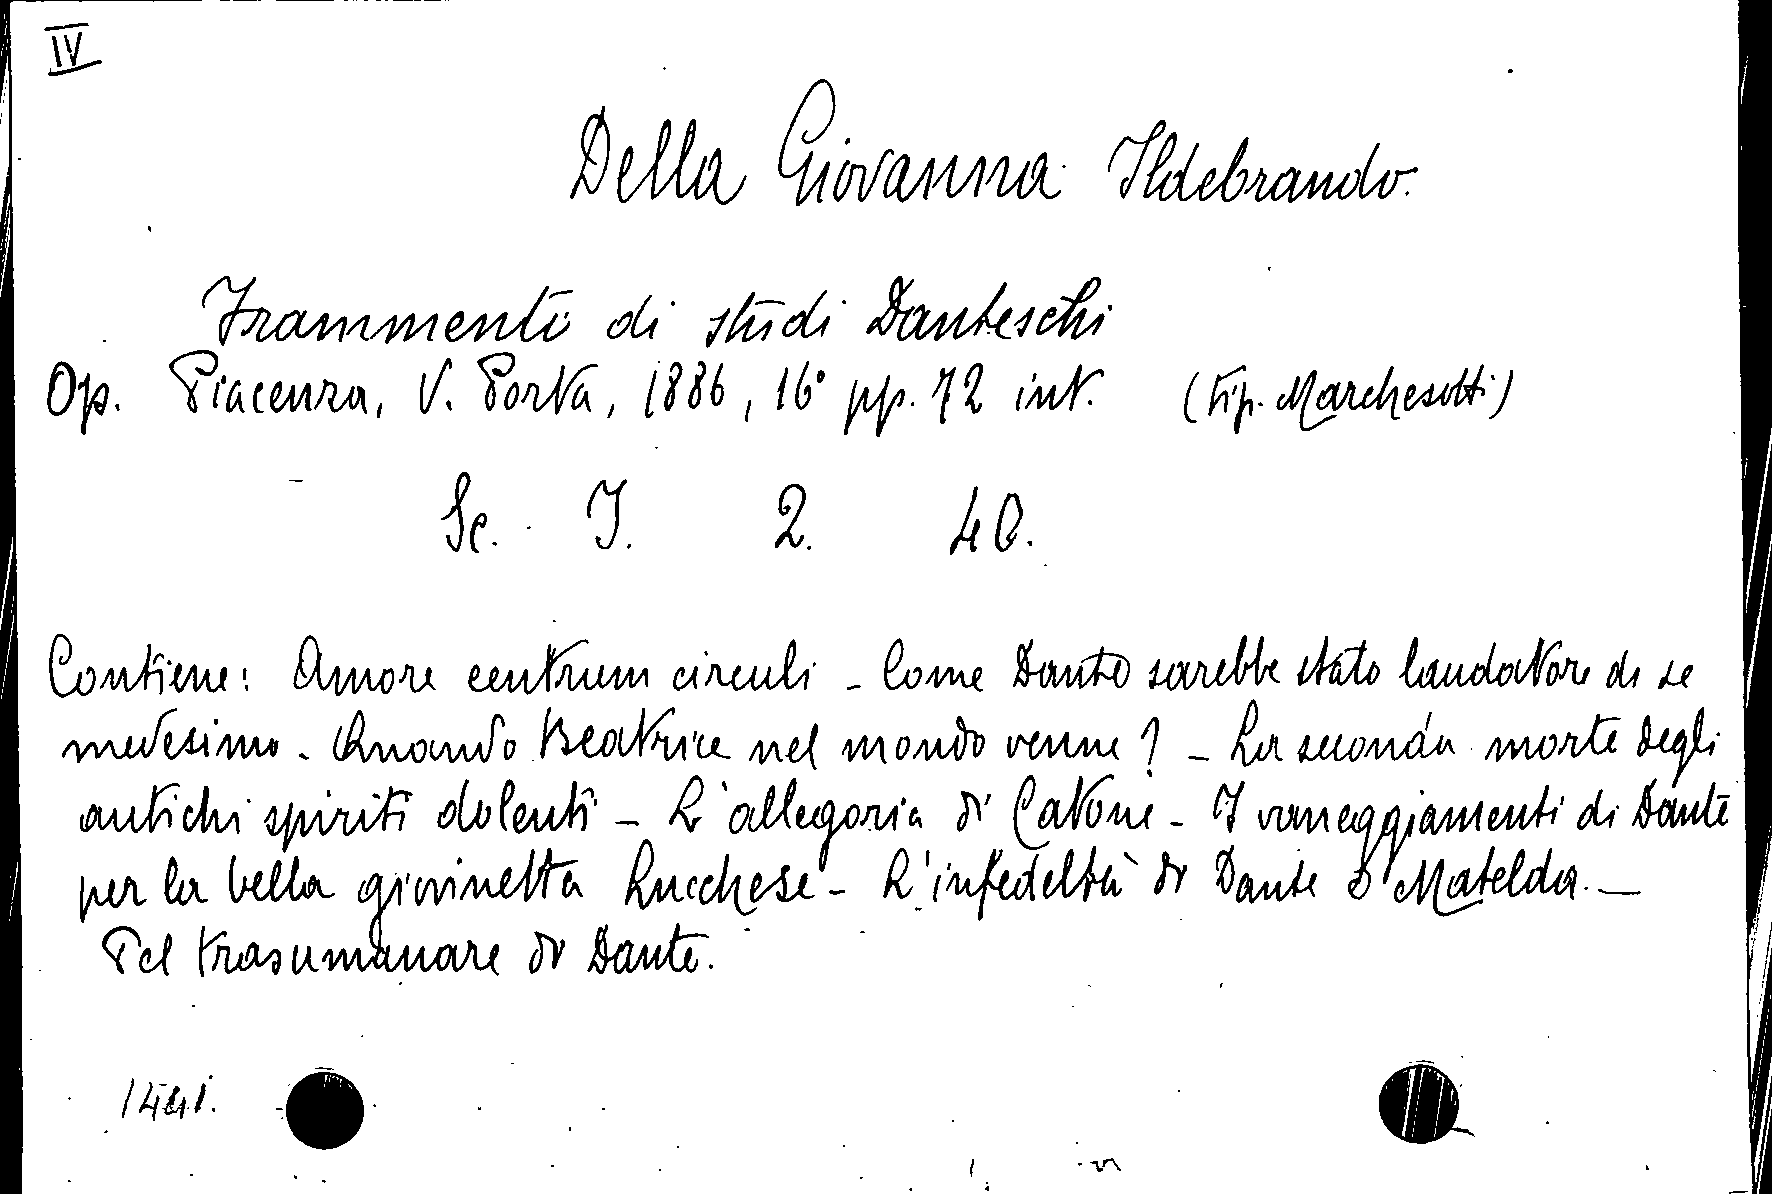 IV
Della Giovanna Ildebrando.
Frammenti di studi Danteschi
Op. Piacenza, V. Porta, 1886, 16° pp. 72 int. (tip. Marchesotti)
Sc. I. 2. 40.
Contiene: Amore centrum circuli - Come Dante sarebbe stato laudatore di se
medesimo - Quando Beatrice nel mondo venne? - La seconda morte degli
antichi spiriti dolenti - L'allegoria di Catone - I vaneggiamenti di Dante
per la bella giovinetta Lucchese - L'infedeltà di Dante e Matelda. -
Pel trasumanare di Dante.